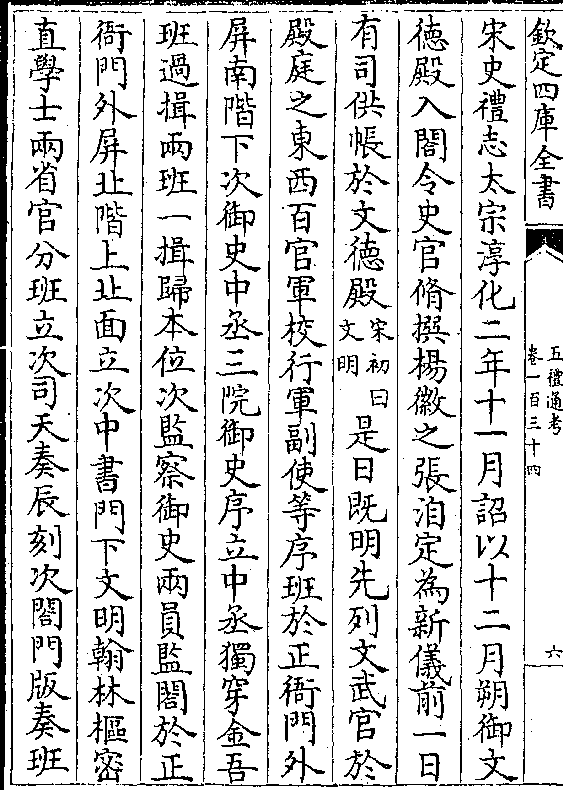 欽定四庫全書
五禮通考
卷一百三十四
六
宋史禮志太宗淳化二年十一月詔以十二月朔御文
徳殿入閤令史官脩撰楊徽之張洎定為新儀前一日
有司供帳於文徳殿宋初曰文明是日既明先列文武官於
殿庭之東西百官軍校行軍副使等序班於正衙門外
屏南階下次御史中丞三院御史序立中丞獨穿金吾
班過揖兩班一揖歸本位次監察御史兩員監閤於正
衙門外屏北階上北面立次中書門下文明翰林樞密
直學士兩省官分班立次司天奏辰刻次閤門版奏班